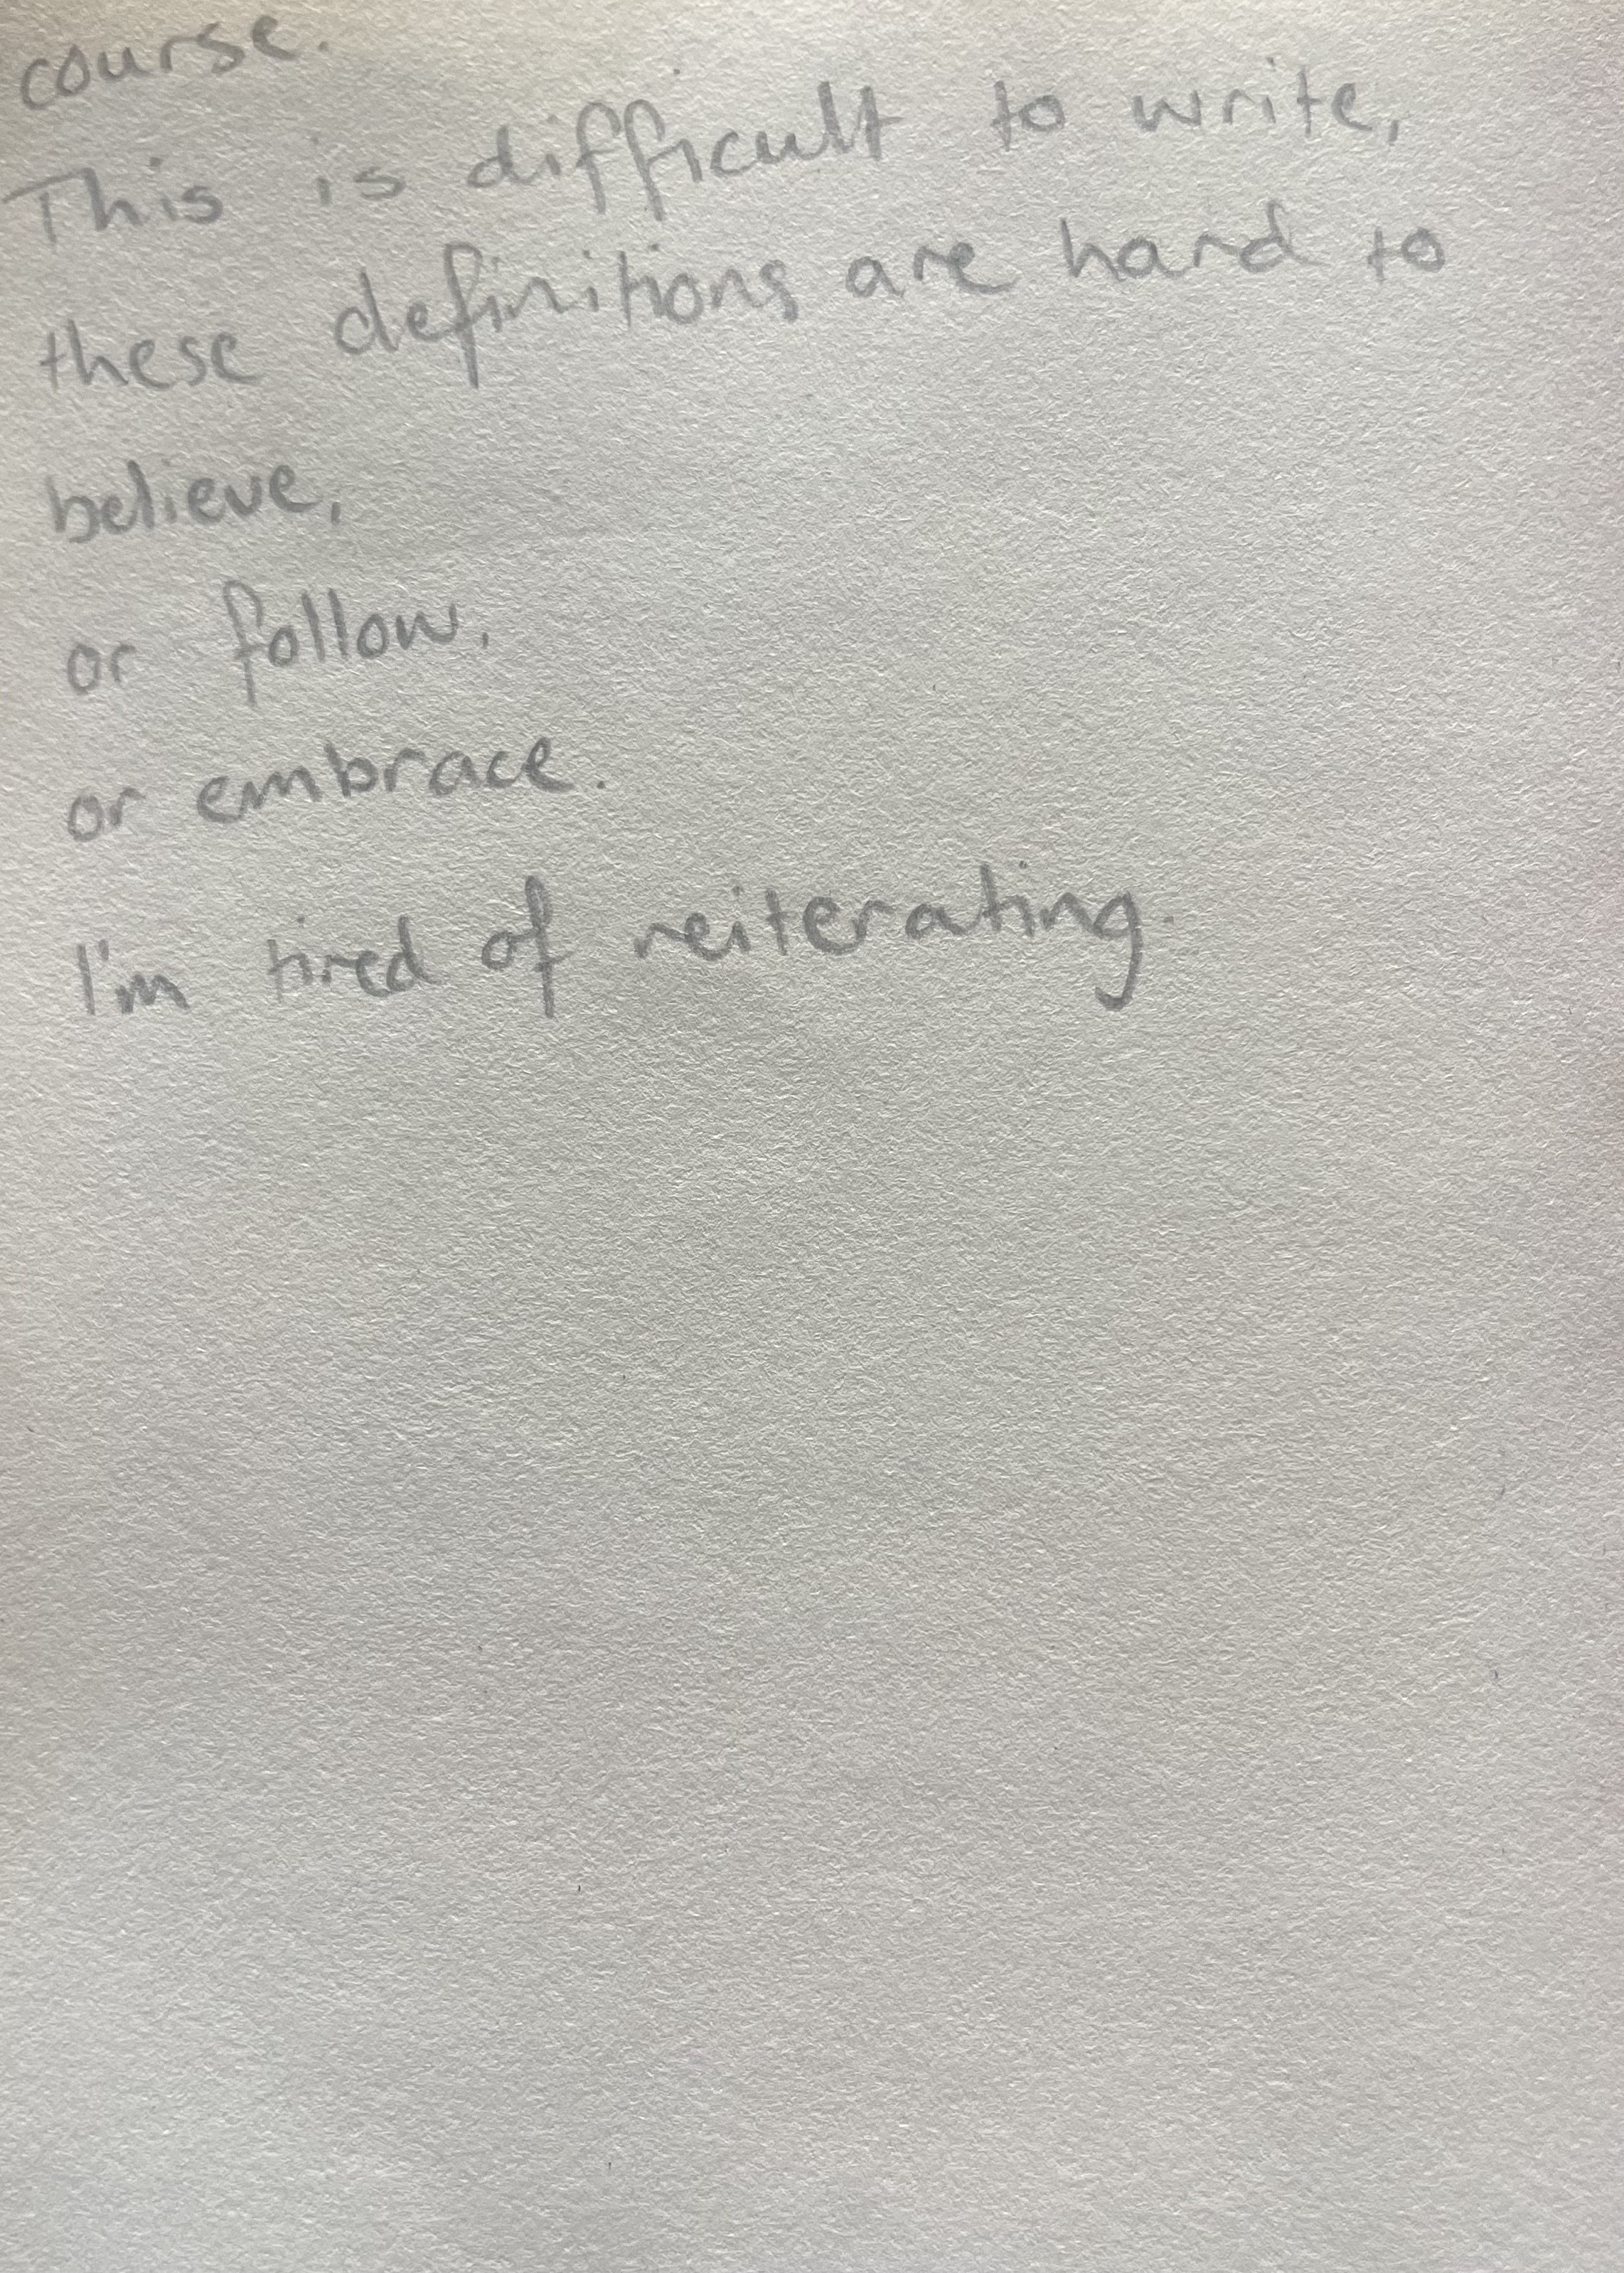 course.
This is difficult to write,
these definitions are hard to
believe,
or follow,
or embrace.
I'm tired of reiterating.